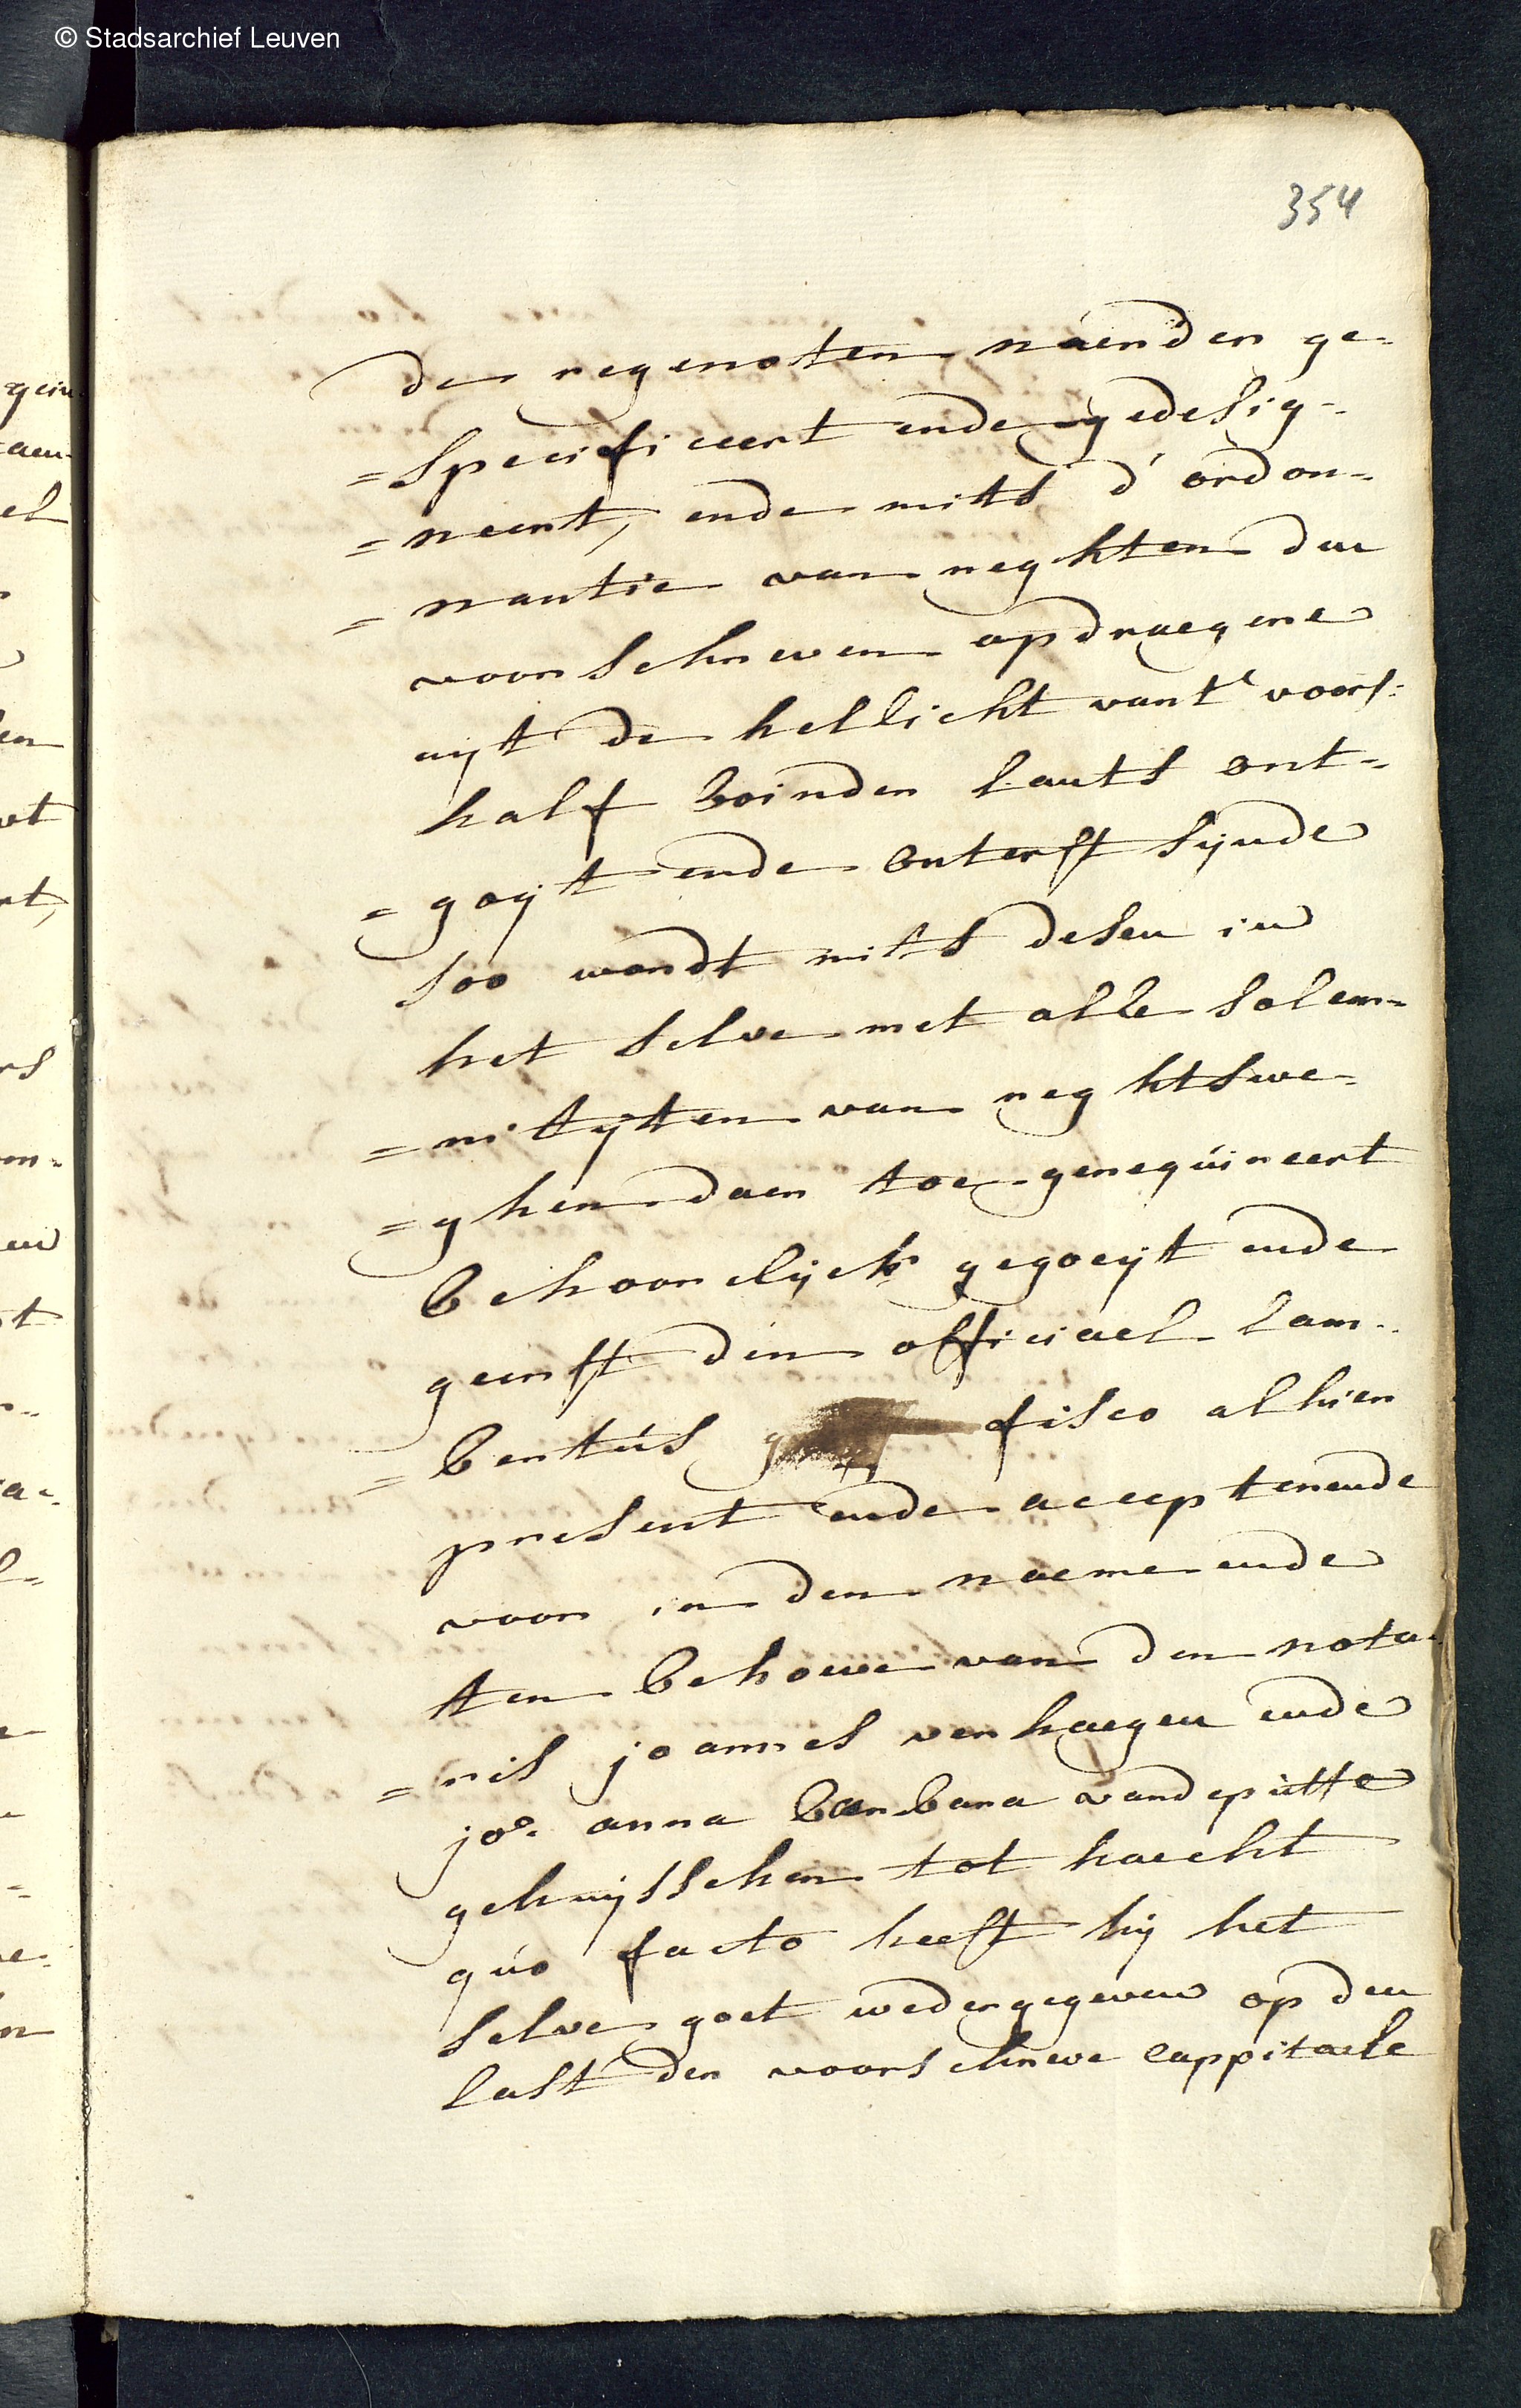 © Stadsarchief Leuven
354
de regenoten naerder ge-
=specificeert ende gedesig-
=neert, ende mits d'ordon-
=nantie van reghten den
voorschreven opdraegere
uijt de hellicht vant voors:
half boinder lants ont-
=goijt ende onterft sijnde
soo wordt mits desen in
het selve met alle solem-
=niteijten van reghtswe-
=ghen daer toe gerequireert
behoorelijck gegoeijt ende
geerft den officiael lam-
=bertús fisco alhier
present ende accepterende
voor in den naeme ende
ten behoeve van den nota-
=ris joannes verhaegen ende
joe. anna barbara vandepútte
gehuijsschen tot haecht
qúo facto heeft hij het
selve goet wedergegeven op den
last der voorschreve cappitaele